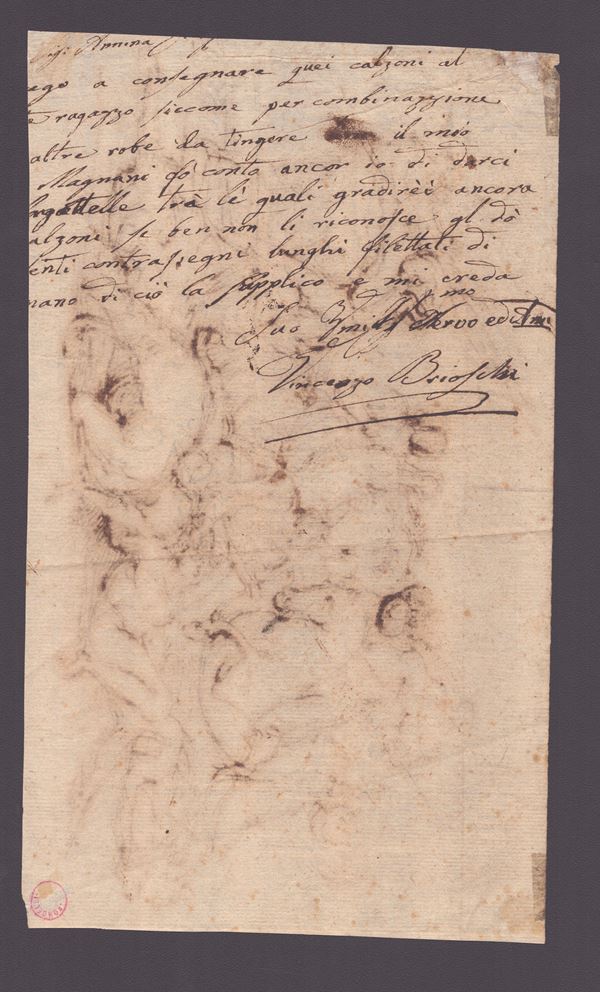 Annina
ego a consegnare quei calzoni al
e ragazzo siccome per combinazzione
altre robe da tingere il mio
Magnani fò conto ancor io di darci
Bagattelle trà lè quali gradirèi ancora
alzoni se ben non li riconosce gl dò
enti contrasegni lunghi filettati di
mano di ciò la supplico e mi creda
Suo Vmilmo Servo ed
Vincenzo Brioschi